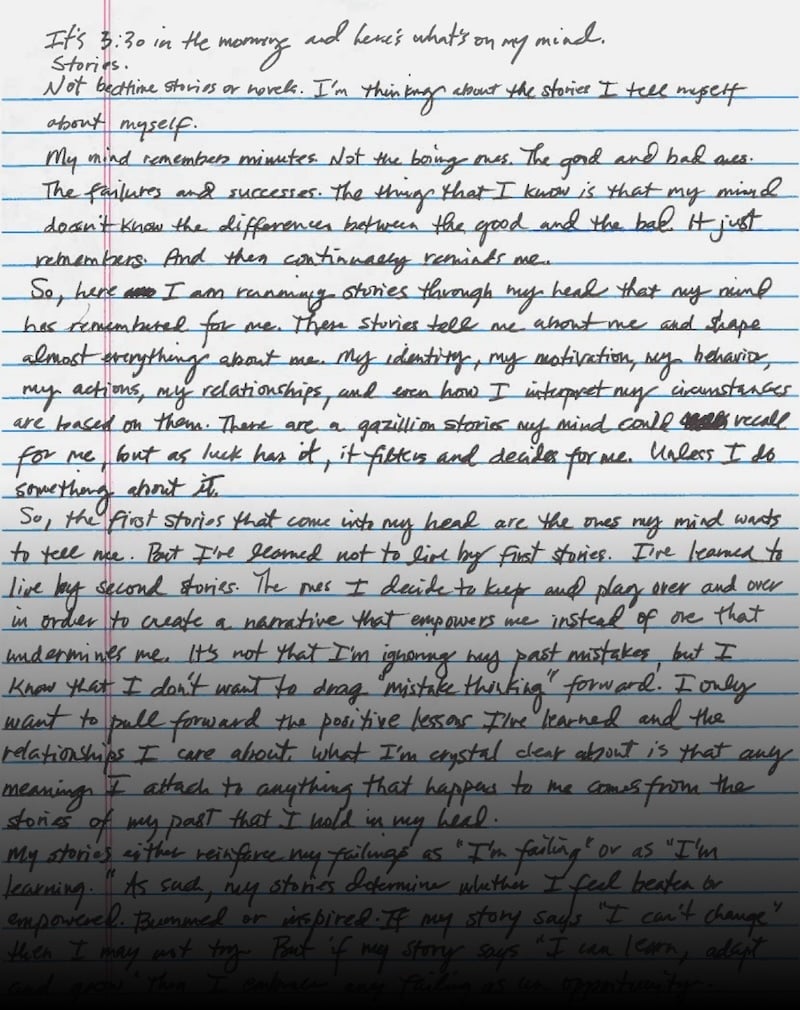 It's 3:30 in the morning and here's what's on my mind.
Stories.
Not bedtime stories or novels. I'm thinking about the stories I tell myself
about myself.
My mind remembers minutes. Not the boring ones. The good and bad ones.
The failures and successes. The thing that I know is that my mind
doesn't know the differences between the good and the bad. It just
remembers. And then continually reminds me.
So, here I am running stories through my head that my mind
has remembered for me. These stories tell me about me and shape
almost everything about me. My identity, my motivation, my behavior,
my actions, my relationships, and even how I interpret my circumstances
are based on them. There are a gazillion stories my mind could recall
for me, but as luck has it, it filters and decides for me. Unless I do
something about it.
So, the first stories that come into my head are the ones my mind wants
to tell me. But I've learned not to live by first stories. I've learned to
live by second stories. The ones I decide to keep and play over and over
in order to create a narrative that empowers me instead of one that
undermines me. It's not that I'm ignoring my past mistakes, but I
know that I don't want to drag "mistake thinking" forward. I only
want to pull forward the positive lessons I've learned and the
relationships I care about. What I'm crystal clear about is that any
meaning I attach to anything that happens to me comes from the
stories of my past that I hold in my head.
My stories either reinforce my failings as "I'm failing" or as "I'm
learning." As such, my stories determine whether I feel beaten or
empowered. Bummed or inspired. If my story says "I can't change"
then I may not try. But if my story says "I can learn, adapt
and grow" then I embrace any failing as an opportunity.